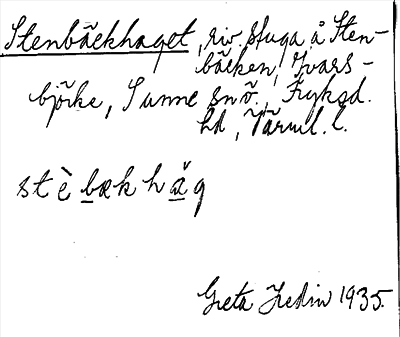 Stenbäckhaget, riv. stuga å Sten-
bäcken, Ivars-
björke, Sunne snö., Fryksd.
hd, Värml. l.
stè bækhåg
Greta Hedin 1935.